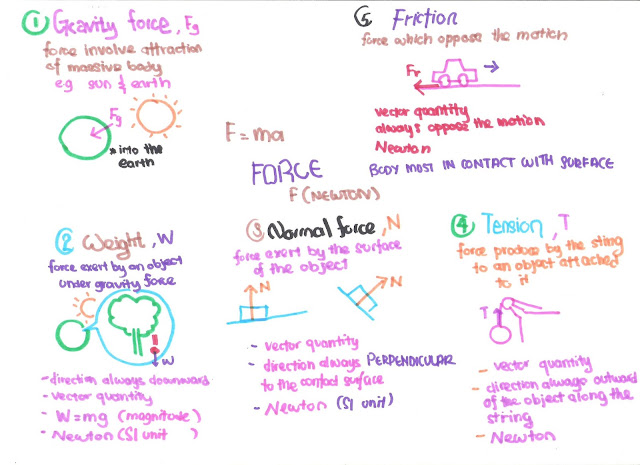 1 Gravity force, Fg
force involve attraction
of massive body
eg sun & earth
Fg
into the
earth
5 Friction
force which oppose the motion
Fr
vector quantity
always oppose the motion
Newton
BODY MOST IN CONTACT WITH SURFACE
F = ma
FORCE
F (NEWTON)
2 Weight, W
force exert by an object
under gravity force
W
- direction always downward
- vector quantity
- W=mg (magnitude)
- Newton (SI unit )
3 Normal force, N
force exert by the surface
of the object
N
N
- vector quantity
- direction always PERPENDICULAR
to the contact surface
- Newton (SI unit)
4 Tension, T
force produce by the sting
to an object attached
to it
T
- vector quantity
- direction always outward
of the object along the
string
- Newton